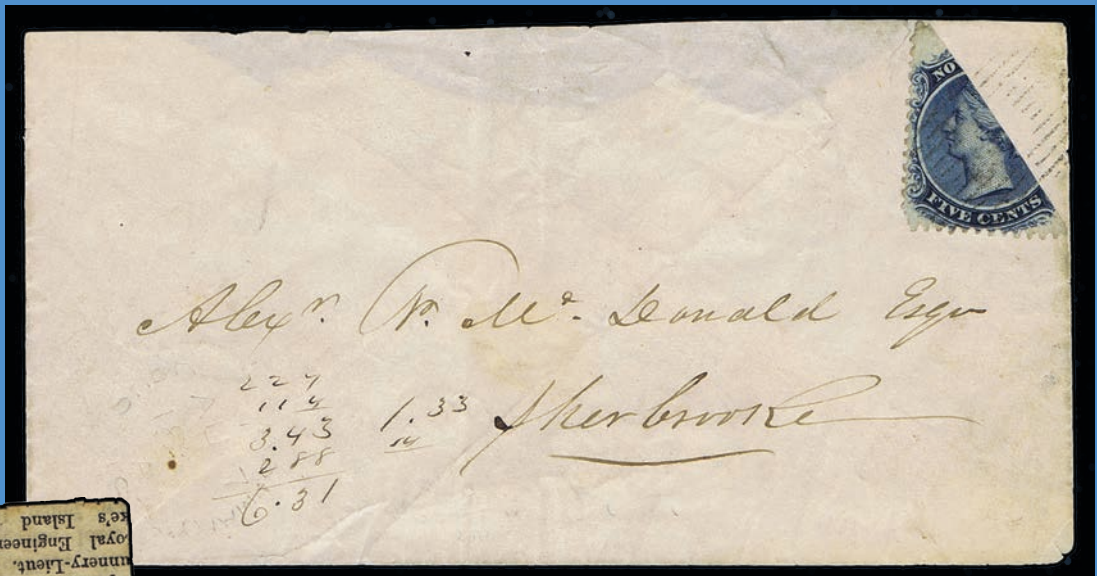 NO
FIVE CENTS
Alexr. N. Mc. Donald Esqr
Sherbrooke
229
114
3.43
288
6.31
1.33
14
unnery-Lieut.
oyal Engineer
ke's Island